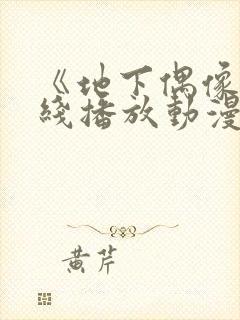 《地下偶像
綫播放動漫
黄芹